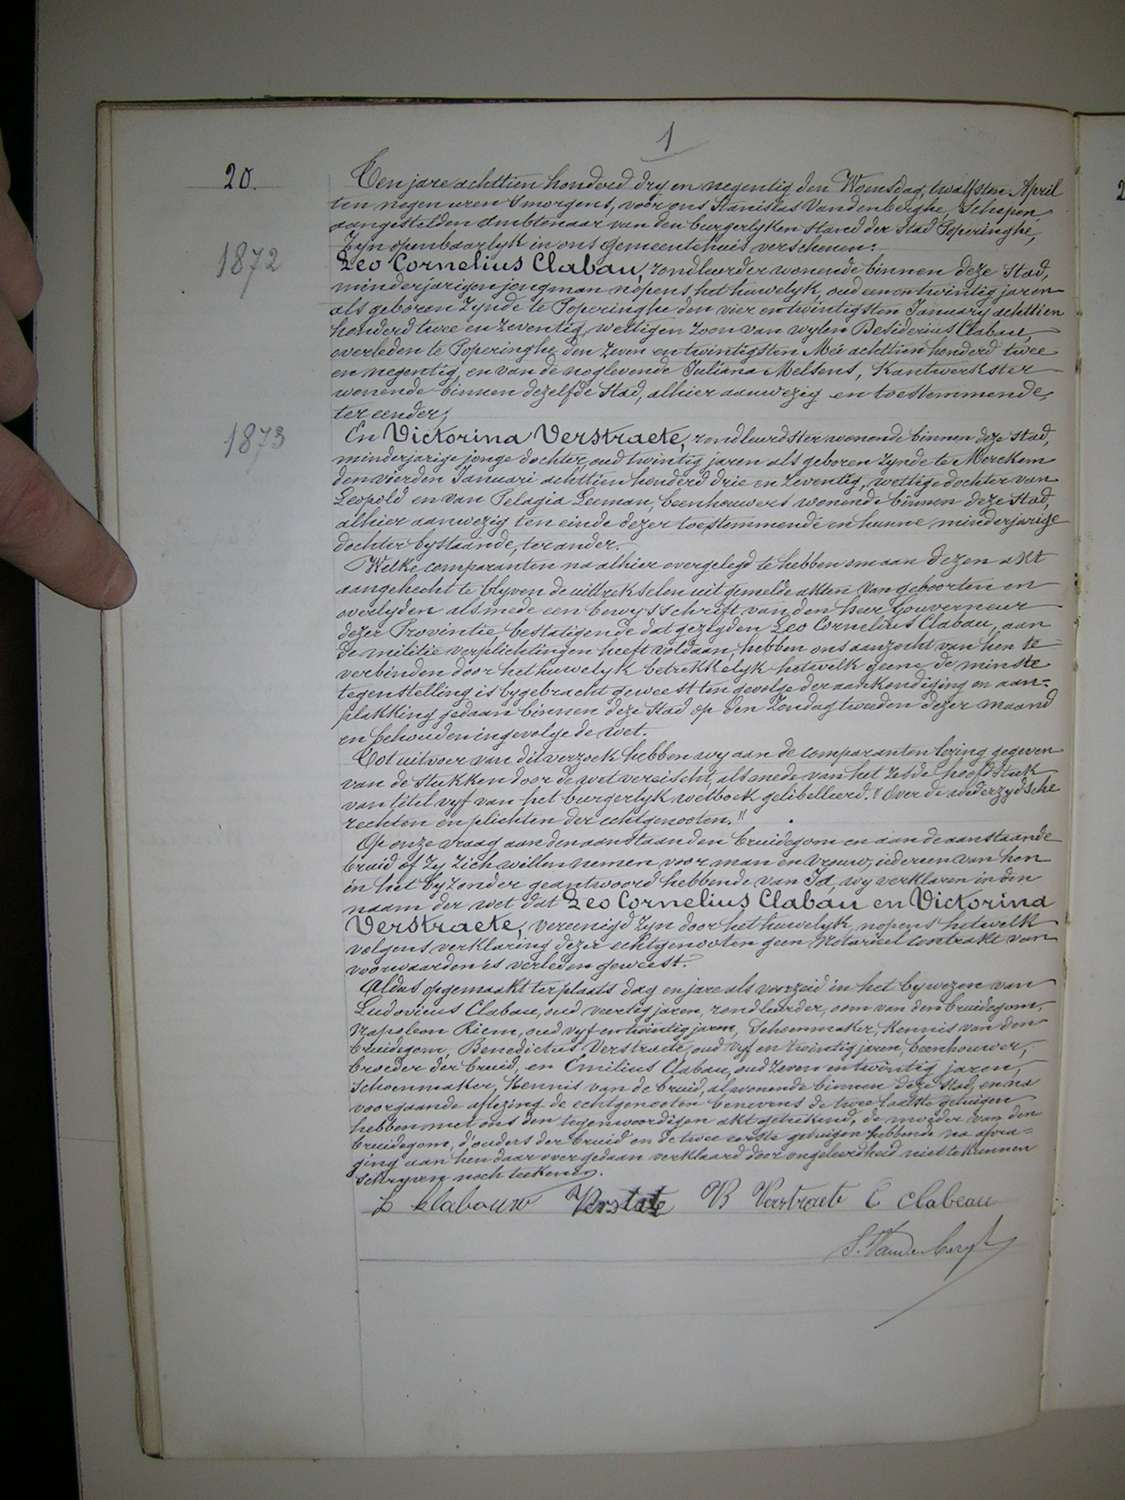 1
20.
Ten jare achttien honderd dry en negentig den Woensdag, twalfsten April
ten negen uren smorgens, voor ons Stanislas Vandenberghe, Schepen,
aangestelden Ambtenaar van den burgerlyken stand der Stad Poperinghe,
Zyn openbaarlyk in ons gemeentehuis verschenen:
1872
Leo Cornelius Clabau, rondleurder wonende binnen deze Stad,
minderjarigen jongman nopens het huwelyk, oud een en twintig jaren
als geboren zynde te Poperinghe den vier en twintigsten January achttien
honderd twee en zeventig, wettigen zoon van wylen Desiderius Clabau,
overleden te Poperinghe den zeven en twintigsten Mei achttien honderd twee
en negentig, en van de noglevende Juliana Melsens, Kantwerkster
wonende binnen dezelfde Stad, alhier aanwezig en toestemmende,
ter eender;
1873
En Victorina Verstraete, rondleurdster wonende binnen deze Stad,
minderjarige jonge dochter, oud twintig jaren als geboren zynde te Merckem
den vierden Januari achttien honderd drie en zeventig, wettige dochter van
Leopold en van Pelagia Leeman, beenhouwers wonende binnen deze Stad,
alhier aanwezig ten einde dezer toestemmende en hunne minderjarige
dochter bystaande, ter ander.
Welke comparanten na alhier overgelegd te hebben om aan dezen akt
aangehecht te blyven de uittrekselen uit gemelde akten van geboorten en
overlyden alsmede een bewysschrift van den heer Gouverneur
dezer Provintie, bestatigende dat gezegden Leo Cornelius Clabau, aan
de militie verplichtingen heeft voldaan, hebben ons aanzocht van hen te
verbinden door het huwelyk betrekkelyk hetwelk geene de minste
tegenstelling is bygebracht geweest ten gevolge der aankondiging en aan=
plakking gedaan binnen deze Stad op den Zondag tweeden dezer maand
en behouden ingevolge de wet.
Tot uitvoer van dit verzoek hebben wy aan de comparanten lezing gegeven
van de Stukken door de wet vereischt, alsmede van het zesde hoofdstuk
van titel vyf van het burgerlyk wetboek gelibelleerd. "Over de wederzydsche
rechten en plichten der echtgenooten."
Op onze vraag aan den aanstaanden bruidegom en aan de aanstaande
bruid of zy zich willen nemen voor man en vrouw, iedereen van hen
in het byzonder geantwoord hebbende van Ja, wy verklaren in den
naam der wet dat Leo Cornelius Clabau en Victorina
Verstraete, vereenigd zyn door het huwelyk, nopens hetwelk
volgens verklaring dezer echtgenooten geen Notarieel contrakt van
voorwaarden is verleden geweest.
Aldus opgemaakt ter plaats dag en jare als voorzeid in het bywezen van
Ludovicus Clabau, oud veertig jaren, rondleurder, oom van den bruidegom,
Napoleon Riem, oud vyf en twintig jaren, Schoenmaker, Kennis van den
bruidegom, Benedictus Verstraete, oud vyf en twintig jaren, beenhouwer,
broeder der bruid, en Emilius Clabau, oud zeven en twintig jaren,
Schoenmaker, Kennis van de bruid, al wonende binnen deze Stad, en na
voorgaande aflezing de echtgenooten benevens de twee laatste getuigen
hebben met ons den tegenwoordigen akt geteekend, de moeder van den
bruidegom, d'ouders der bruid en de twee eerste getuigen hebbende na afvra=
ging aan hen daar over gedaan verklaard door ongeleerdheid niet te kunnen
schryven noch teekenen.
L Clabouw Verstate B Verstraete E Clabeau
S. Vandenberghe